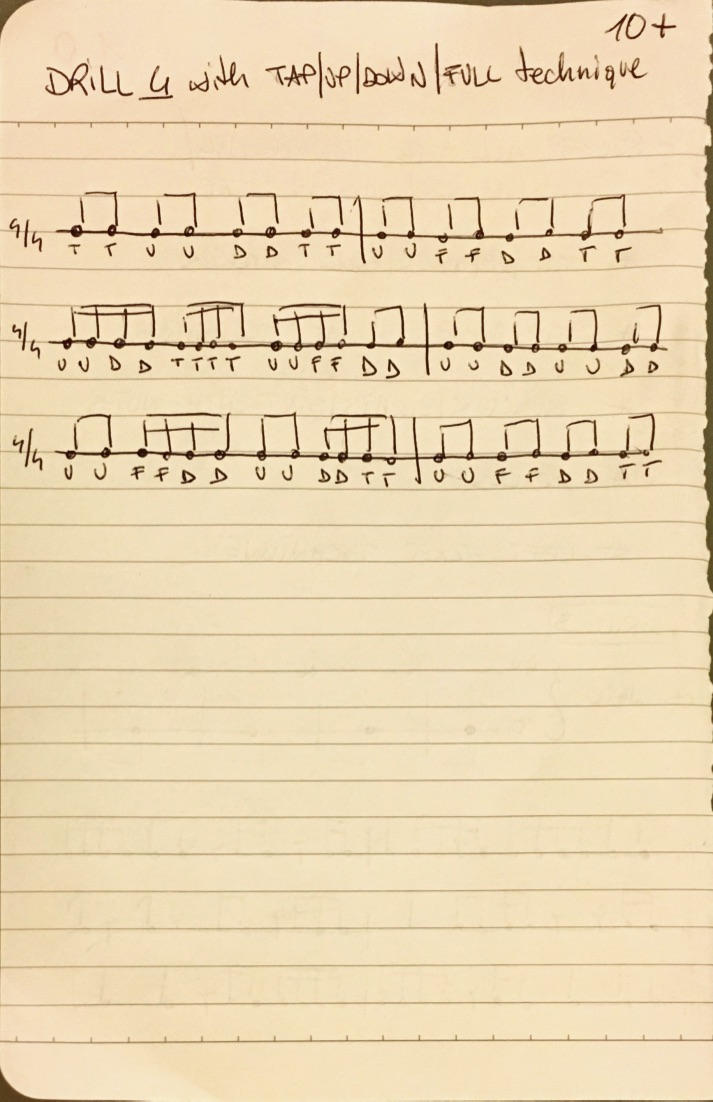 10+
DRILL 4 with TAP/UP/DOWN/FULL technique
4/4
T T U U D D T T U U F F D D T T
4/4
U U D D T T T T U U F F D D U U D D U U D D
4/4
U U F F D D U U D D T T U U F F D D T T